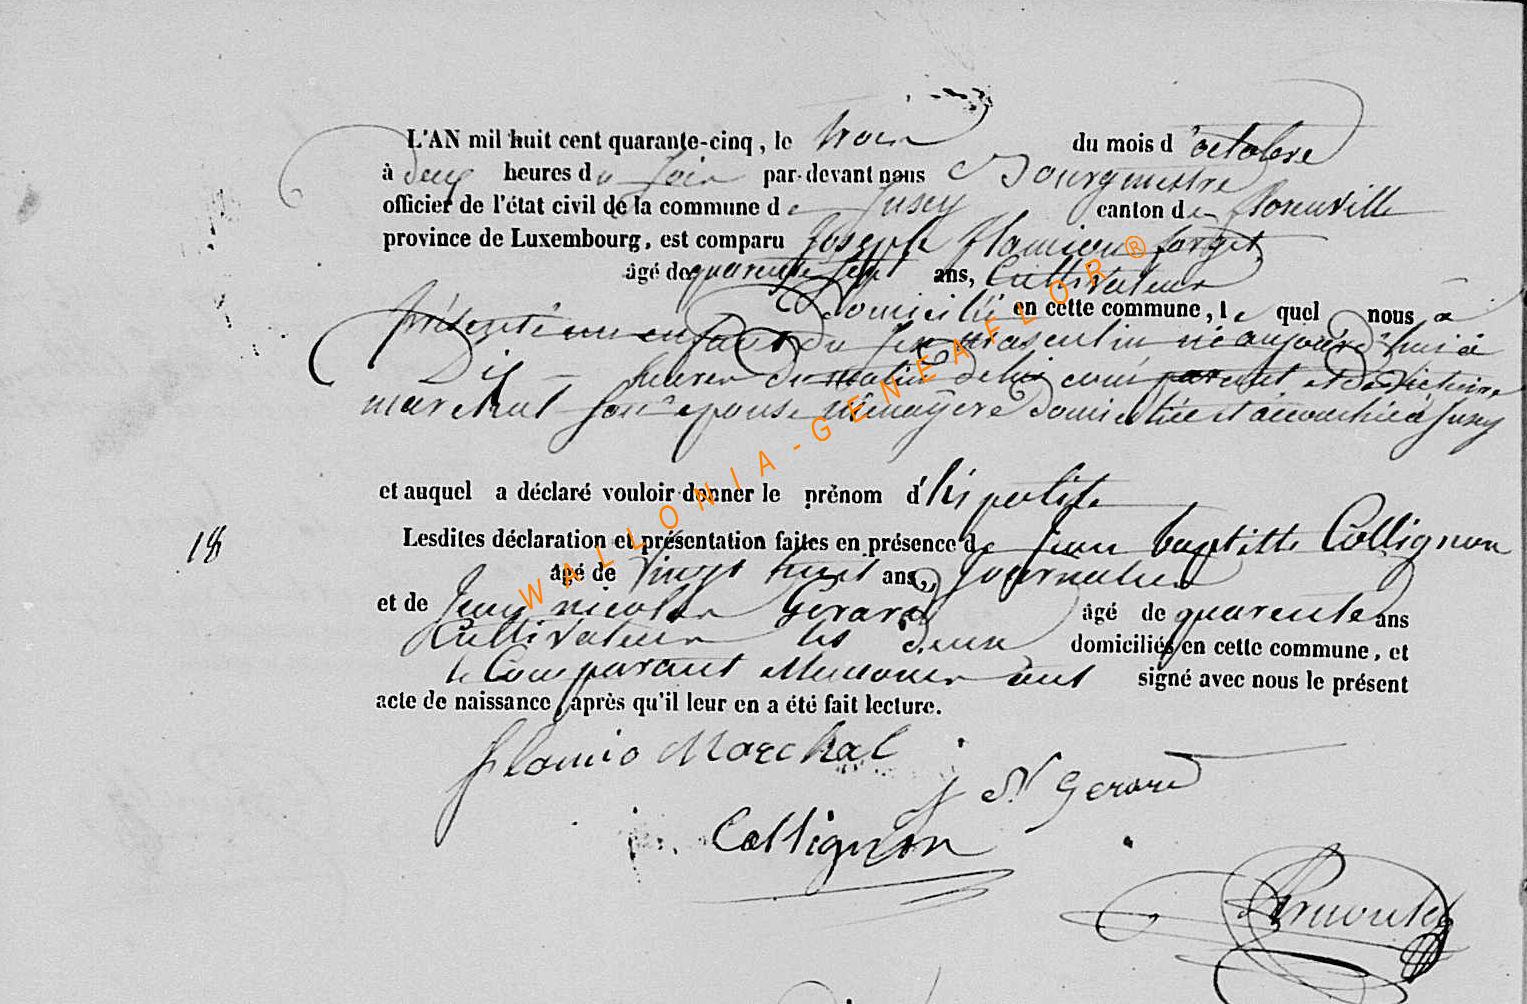 L'AN mil huit cent quarante-cinq, le trois du mois d'octobre
à deux heures du soir par-devant nous Bourgmestre
officier de l'état civil de la commune de Jusey canton de
province de Luxembourg, est comparu Joseph Flamion
âgé de quarente sept ans, Cultivateur
Domicilié en cette commune, le quel nous a
présenté un enfant du sex masculin né aujourd'hui à
Dix heures du matin de lui comparent et de Victoire
marchal son épouse ménagère domiciliée et accouchée à Jusey
et auquel a déclaré vouloir donner le prénom d'hispolite
18
Lesdites déclaration et présentation faites en présence de jean baptitte Collignon
âgé de vingt huit ans, Journalier
et de Jean nicolas Gerard âgé de quarente ans
Cultivateur les deux domiciliés en cette commune, et
le Comparant ont signé avec nous le présent
acte de naissance, après qu'il leur en a été fait lecture.
Flamio Marchal
J N Gerard
Collignon
WALLONIA-GENEAFLOR®